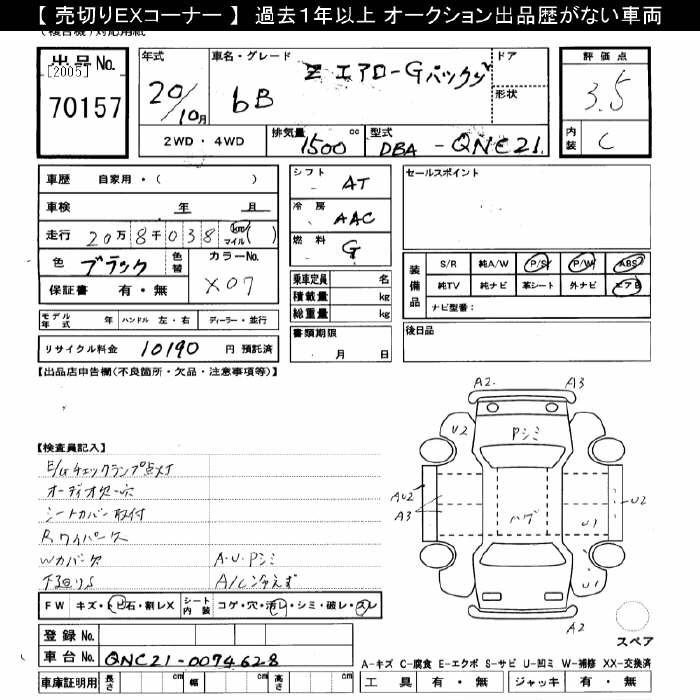 【 売切りEXコーナー 】 過去1年以上 オークション出品歴がない車両
(複合機)対応用紙
出品No.
[2005]
70157
年式
20/10月
車名・グレード
bB
Z エアロ-Gパッケージ
ドア
形状
評価点
3.5
内装
C
2WD・4WD
排気量
1500
cc
型式
DBA - QNC21
車歴 自家用・( )
車検 年 月
走行 20万8千038 km マイル ( )
色 ブラック
色替
カラーNo.
X07
保証書 有・無
シフト
AT
冷房
AAC
燃料
G
乗車定員 名
積載量 kg
総重量 kg
セールスポイント
装備品
S/R 純A/W P/S P/W ABS
純TV 純ナビ 革シート 外ナビ エアB
ナビ型番:
モデル年式 年 ハンドル 左・右 ディーラー・並行
リサイクル料金 10190 円 預託済
書類期限
月 日
後日品
【出品店申告欄(不良箇所・欠品・注意事項等)】
【検査員記入】
E/Gチェックランプ点灯
オーディオ欠穴
シートカバー取付
Rワイパー欠
Wカバー欠
下回りS
A・U・Pシミ
A/C冷えず
A2
A3
U2
Pシミ
AU2
A3
ハゲ
U2
U1
U1
A2
スペア
FW キズ・トビ石・割レX
シート内装
コゲ・穴・汚レ・シミ・破レ・スレ
登録No.
車台No. QNC21-0074628
車庫証明用 長さ cm 幅 cm 高さ cm
A-キズ C-腐食 E-エクボ S-サビ U-凹ミ W-補修 XX-交換済
工具 有・無 ジャッキ 有・無